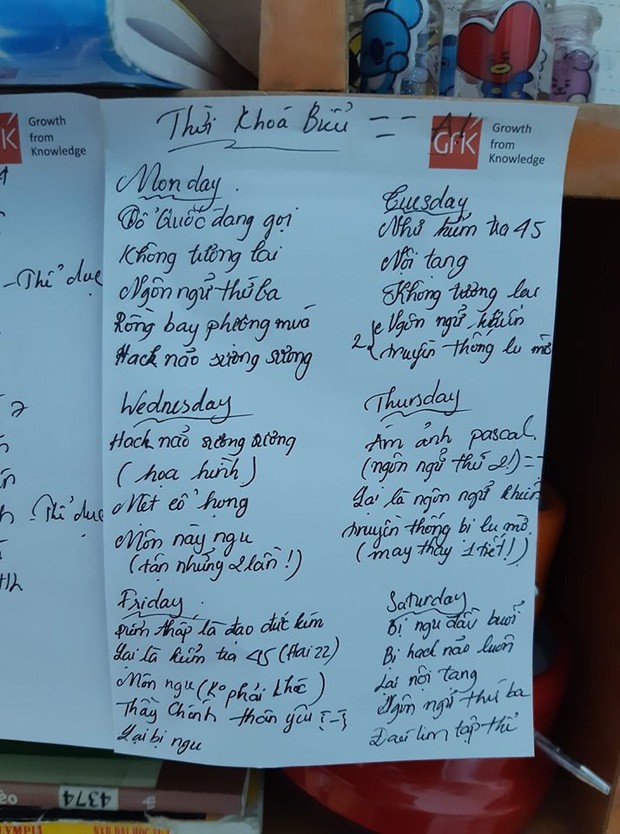 Growth
from
Knowledge
Thời Khoá Biểu == A1
GfK Growth
from
Knowledge
- Thể dục
- Thể dục
Monday.
Tổ Quốc đang gọi
Không tương lai
Ngôn ngữ thứ ba
Rồng bay phượng múa
Hack não sương sương
Tuesday
Như kiểm tra 45
Nội tang
Không tương lai
Ngôn ngữ khiến
2 truyền thống lu mờ
Wednesday
Hack não sương sương
(họa hình)
Mệt cổ họng
Môn này ngu
(tận những 2 lần!)
Thursday
Ám ảnh pascal.
(ngôn ngữ thứ 2!) ==
Lại là ngôn ngữ khiến
truyền thống bị lu mờ
(may thay 1 tiết!)
Friday.
Điểm thấp là đạo đức kém
Lại là kiểm tra 45 (Hai 22)
Môn ngu (Ko phải khóc)
Thầy Chánh thân yêu
Lại bị ngu
Saturday
Bị ngu đầu buổi
Bị hack não luôn
Lại nội tang
Ngôn ngữ thứ ba
Đau tim tập thể
4374
OLYMPIA